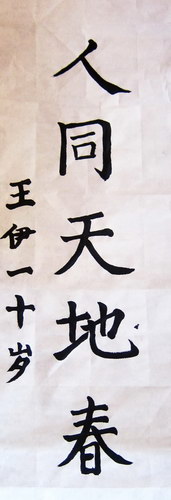 人同天地春
王伊一十岁